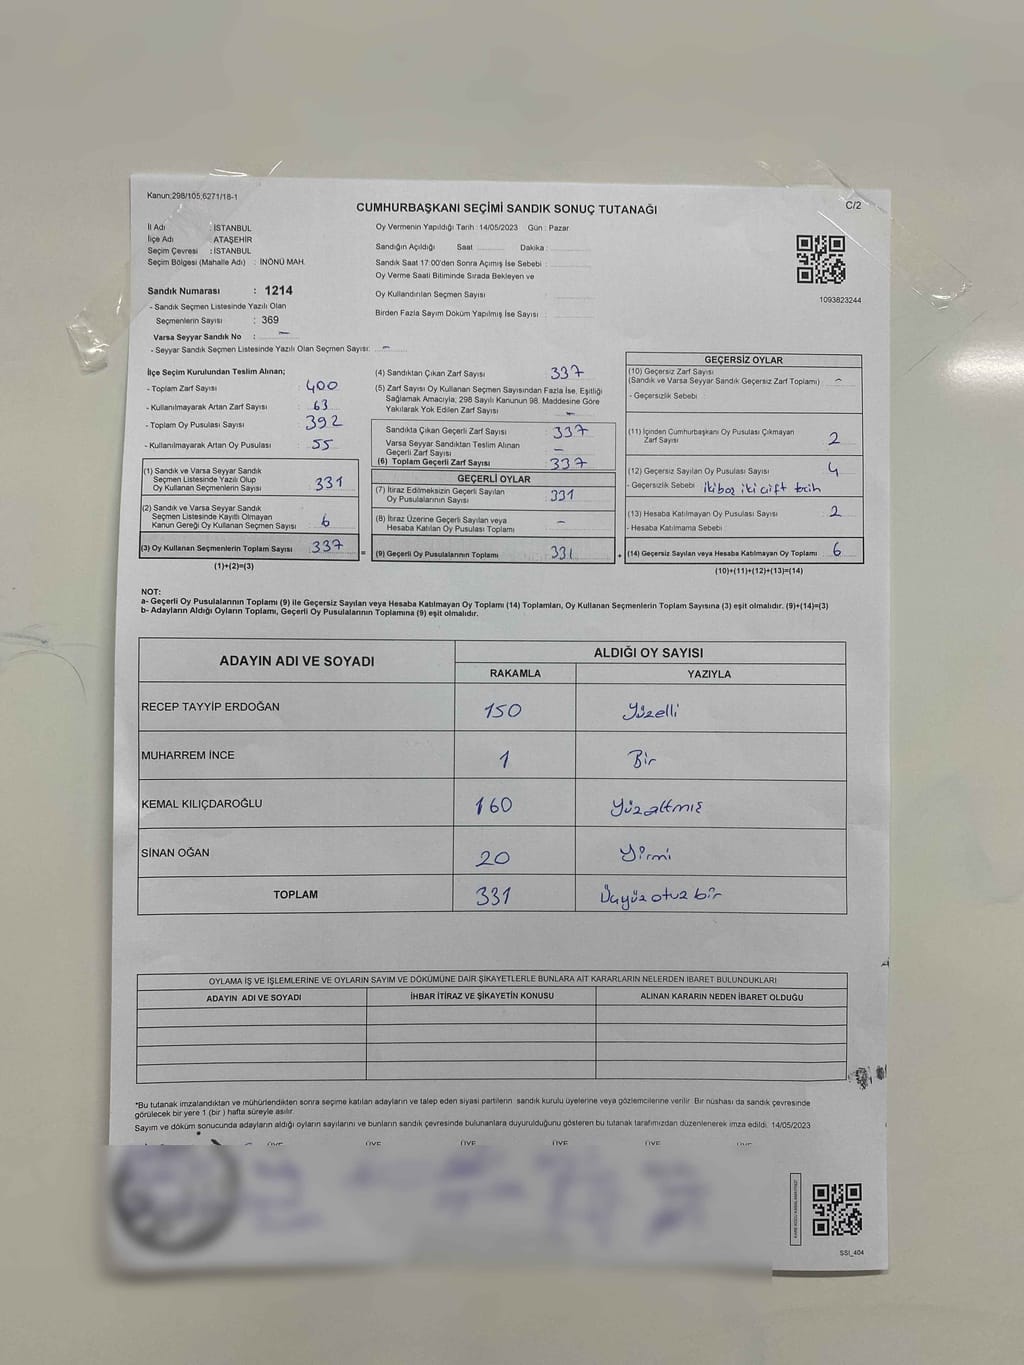 Kanun;298/105,6271/18-1
C/2
CUMHURBAŞKANI SEÇİMİ SANDIK SONUÇ TUTANAĞI
İl Adı : İSTANBUL
İlçe Adı : ATAŞEHİR
Seçim Çevresi : İSTANBUL
Seçim Bölgesi (Mahalle Adı) : İNÖNÜ MAH.
Oy Vermenin Yapıldığı Tarih : 14/05/2023 Gün : Pazar
Sandığın Açıldığı Saat : Dakika :
Sandık Saat 17:00'den Sonra Açımış İse Sebebi :
Oy Verme Saati Bitiminde Sırada Bekleyen ve
Oy Kullandırılan Seçmen Sayısı
Birden Fazla Sayım Döküm Yapılmış İse Sayısı :
1093823244
Sandık Numarası : 1214
- Sandık Seçmen Listesinde Yazılı Olan
Seçmenlerin Sayısı : 369
Varsa Seyyar Sandık No : -
- Seyyar Sandık Seçmen Listesinde Yazılı Olan Seçmen Sayısı: -
İlçe Seçim Kurulundan Teslim Alınan;
- Toplam Zarf Sayısı : 400
- Kullanılmayarak Artan Zarf Sayısı : 63
- Toplam Oy Pusulası Sayısı : 392
- Kullanılmayarak Artan Oy Pusulası : 55
(1) Sandık ve Varsa Seyyar Sandık
Seçmen Listesinde Yazılı Olup
Oy Kullanan Seçmenlerin Sayısı : 331
(2) Sandık ve Varsa Seyyar Sandık
Seçmen Listesinde Kayıtlı Olmayan
Kanun Gereği Oy Kullanan Seçmen Sayısı : 6
(3) Oy Kullanan Seçmenlerin Toplam Sayısı : 337 =
(1)+(2)=(3)
(4) Sandıktan Çıkan Zarf Sayısı : 337
(5) Zarf Sayısı Oy Kullanan Seçmen Sayısından Fazla İse, Eşitliği
Sağlamak Amacıyla; 298 Sayılı Kanunun 98. Maddesine Göre
Yakılarak Yok Edilen Zarf Sayısı : -
Sandıkta Çıkan Geçerli Zarf Sayısı : 337
Varsa Seyyar Sandıktan Teslim Alınan
Geçerli Zarf Sayısı : -
(6) Toplam Geçerli Zarf Sayısı : 337
GEÇERLİ OYLAR
(7) İtiraz Edilmeksizin Geçerli Sayılan
Oy Pusulalarının Sayısı : 331
(8) İtiraz Üzerine Geçerli Sayılan veya
Hesaba Katılan Oy Pusulası Toplamı : -
(9) Geçerli Oy Pusulalarının Toplamı : 331 +
GEÇERSİZ OYLAR
(10) Geçersiz Zarf Sayısı
(Sandık ve Varsa Seyyar Sandık Geçersiz Zarf Toplamı) : -
- Geçersizlik Sebebi :
(11) İçinden Cumhurbaşkanı Oy Pusulası Çıkmayan
Zarf Sayısı : 2
(12) Geçersiz Sayılan Oy Pusulası Sayısı : 4
- Geçersizlik Sebebi : iki boş iki çift tercih
(13) Hesaba Katılmayan Oy Pusulası Sayısı : 2
- Hesaba Katılmama Sebebi :
(14) Geçersiz Sayılan veya Hesaba Katılmayan Oy Toplamı : 6
(10)+(11)+(12)+(13)=(14)
NOT:
a- Geçerli Oy Pusulalarının Toplamı (9) ile Geçersiz Sayılan veya Hesaba Katılmayan Oy Toplamı (14) Toplamları, Oy Kullanan Seçmenlerin Toplam Sayısına (3) eşit olmalıdır. (9)+(14)=(3)
b- Adayların Aldığı Oyların Toplamı, Geçerli Oy Pusulalarının Toplamına (9) eşit olmalıdır.
ADAYIN ADI VE SOYADI ALDIĞI OY SAYISI
RAKAMLA YAZIYLA
RECEP TAYYİP ERDOĞAN 150 Yüzelli
MUHARREM İNCE 1 Bir
KEMAL KILIÇDAROĞLU 160 Yüzaltmış
SİNAN OĞAN 20 Yirmi
TOPLAM 331 Üçyüz otuz bir
OYLAMA İŞ VE İŞLEMLERİNE VE OYLARIN SAYIM VE DÖKÜMÜNE DAİR ŞİKAYETLERLE BUNLARA AİT KARARLARIN NELERDEN İBARET BULUNDUKLARI
ADAYIN ADI VE SOYADI İHBAR İTİRAZ VE ŞİKAYETİN KONUSU ALINAN KARARIN NEDEN İBARET OLDUĞU
*Bu tutanak imzalandıktan ve mühürlendikten sonra seçime katılan adayların ve talep eden siyasi partilerin sandık kurulu üyelerine veya gözlemcilerine verilir. Bir nüshası da sandık çevresinde
görülecek bir yere 1 (bir ) hafta süreyle asılır.
Sayım ve döküm sonucunda adayların aldığı oyların sayılarını ve bunların sandık çevresinde bulunanlara duyurulduğunu gösteren bu tutanak tarafımızdan düzenlenerek imza edildi. 14/05/2023
ÜYE ÜYE ÜYE ÜYE ÜYE ÜYE
SSI_404